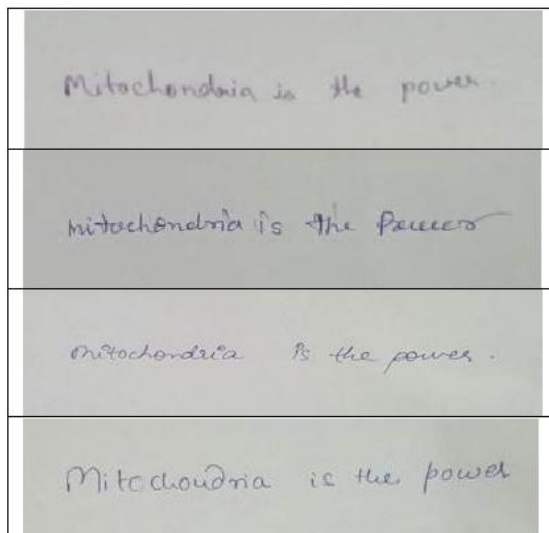 Mitochondria is the power.
mitochondria is the Power
mitochondria is the power.
Mitochondria is the power